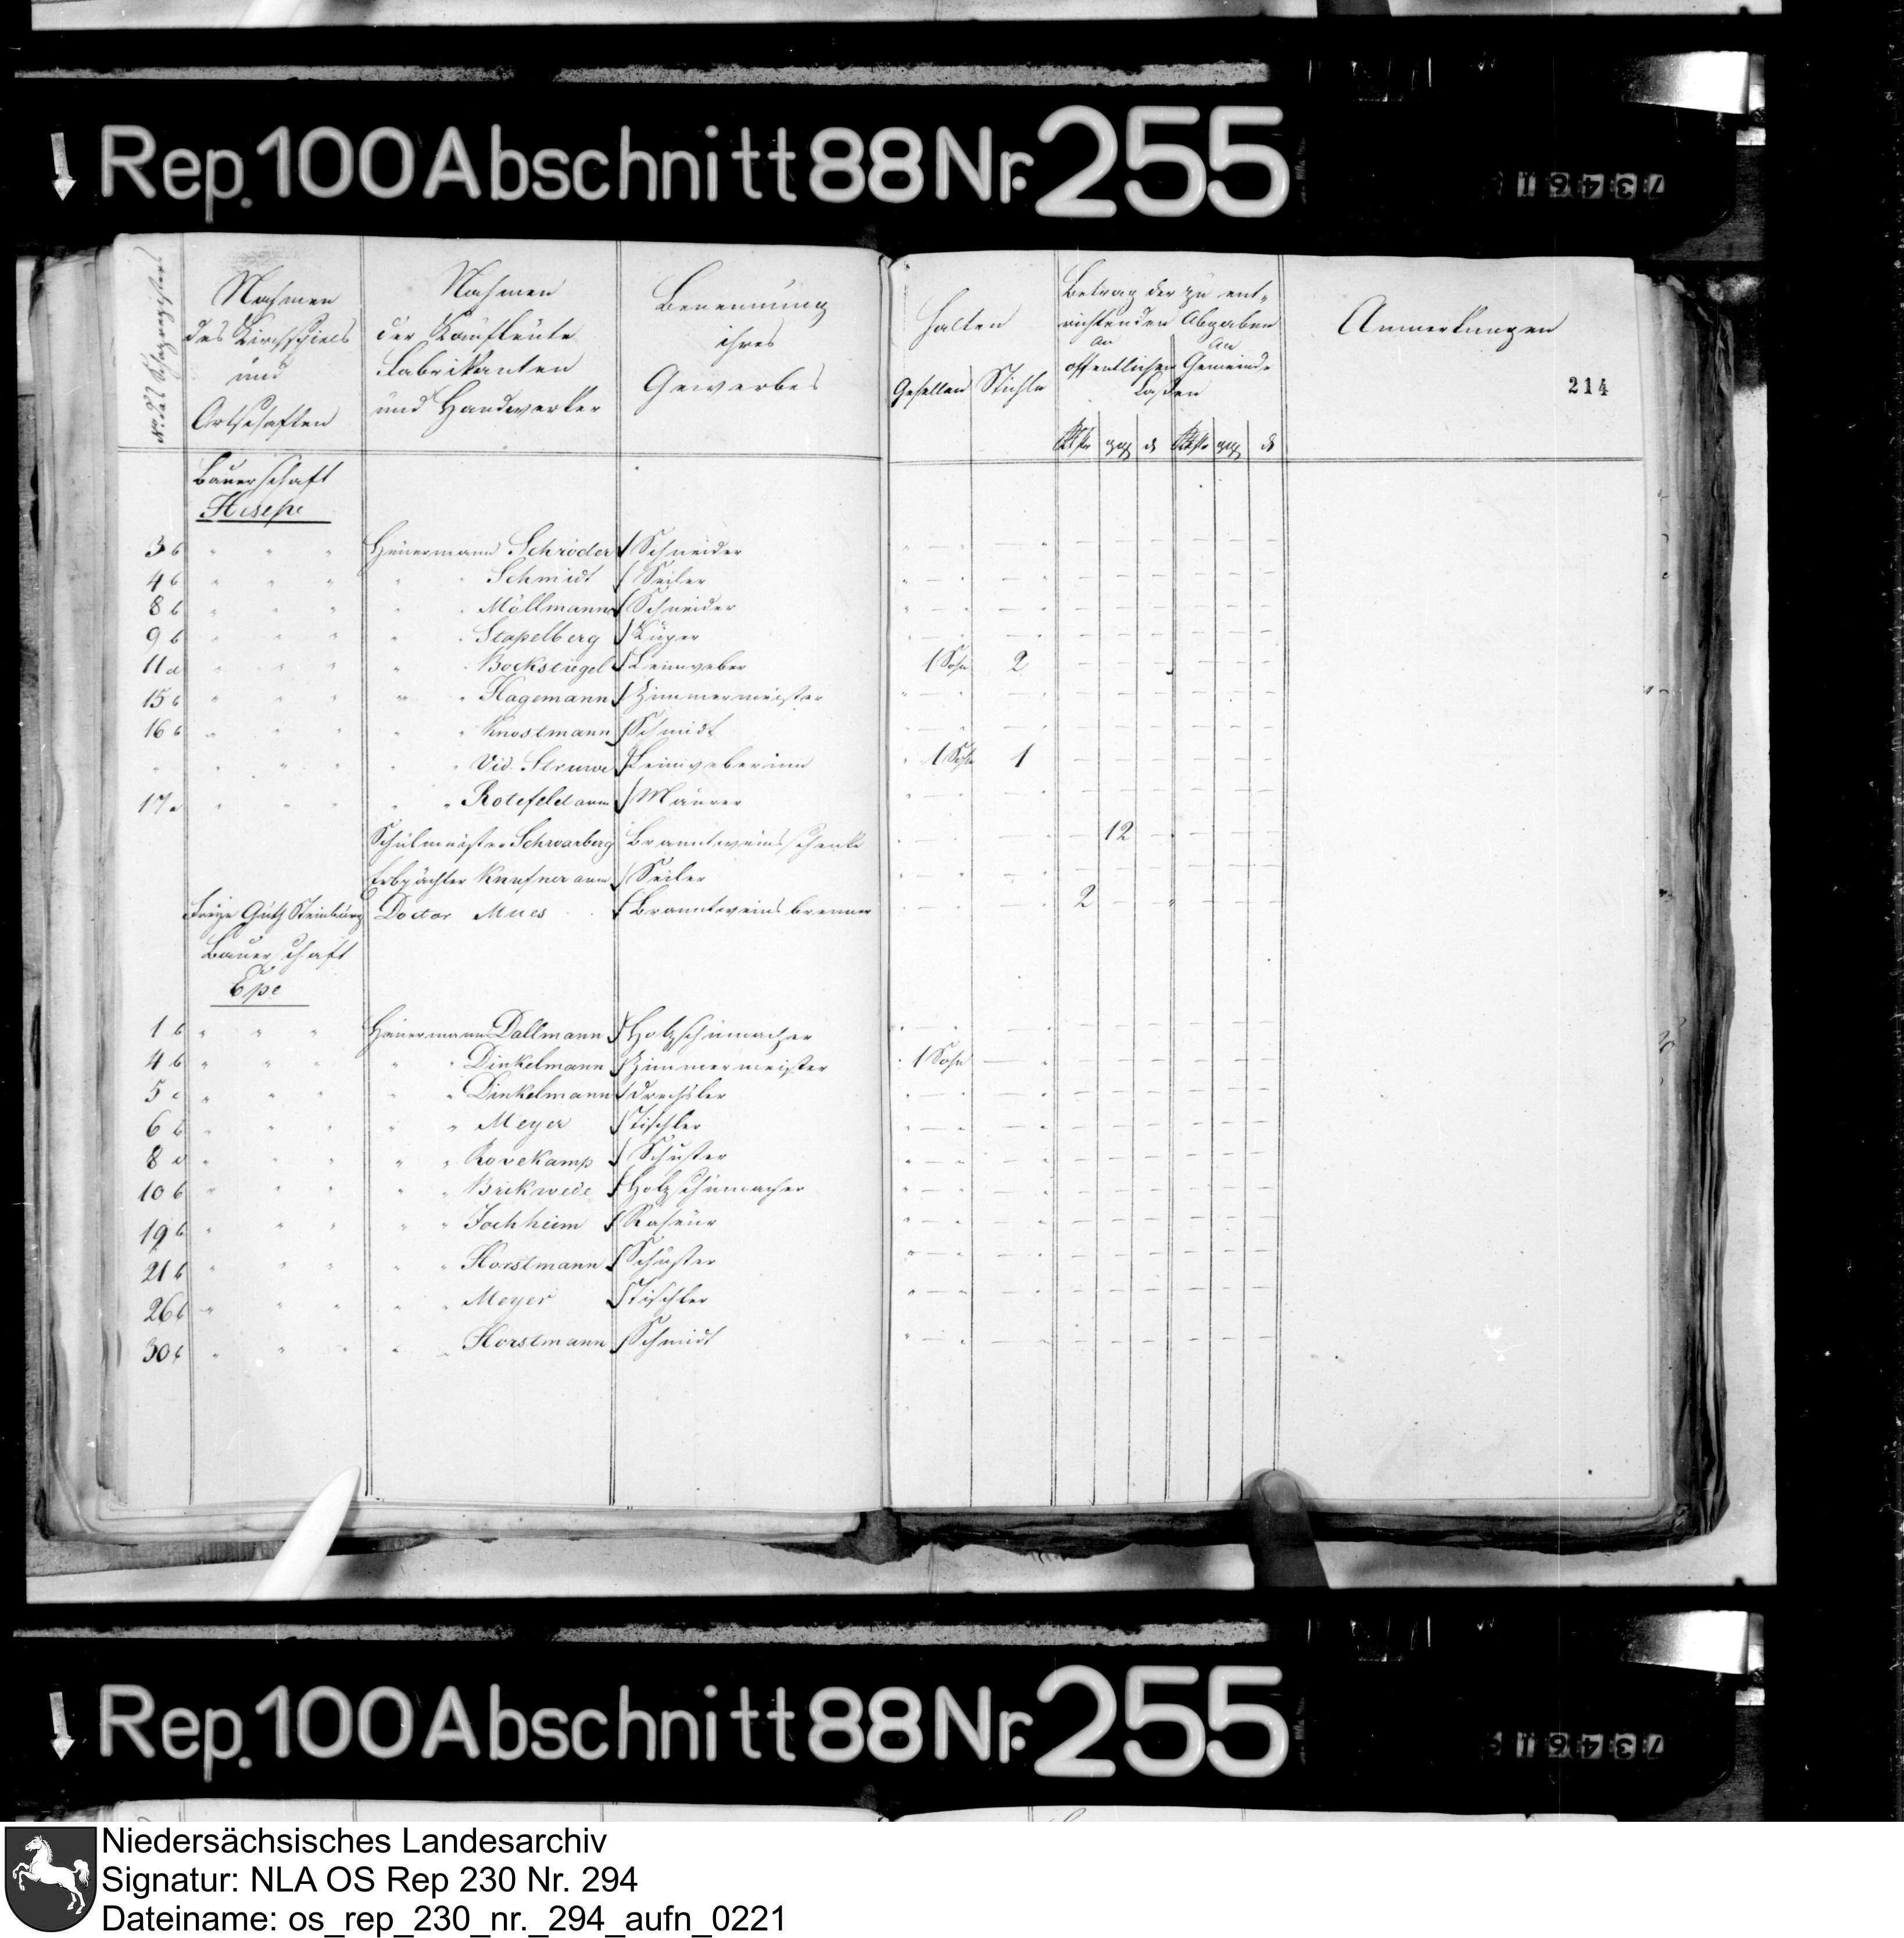 Rep. 100 Abschnitt 88 Nr. 255
No des Schazregisters
Nahmen des Kirchspiels und Ortschaften
Nahmen der Kaufleute Fabrikanten und Handwerker
Benennung ihres Gewerbes
halten
Gesellen Stühle
Betrag der zu entrichtenden Abgaben
an öffentlichen an Gemeinde
Lasten
Anmerkungen
214
Rthlr ggr d Rthlr ggr d
Bauerschaft
Hesepe
3 b " " " Heuermann Schröder Schneider
4 b " " " " " Schmidt Seiler
8 b " " " " " Möllmann Schneider
9 b " " " " " Stapelberg Küper
11 a " " " " " Bockstiegel Leinweber 1 Sohn 2
15 b " " " " " Hagemann Zimmermeister
16 b " " " " " Knostmann Schmidt
" " " " " " Vid. Struwe Leinweberinn 1 Sohn 1
17 a " " " " " Rotefeld arm Maurer
Schulmeister Schwarberg Branntweinsschenke 12
Erbpächter Knufner arm Seiler
Freye Guth Steinburg Doctor Mues Branntweins brenner 2
Bauerschaft
Epe
1 b " " " Heuermann Dallmann Holzschumacher
4 b " " " " " Dinkelmann Zimmermeister 1 Sohn
5 c " " " " " Dinkelmann Drechsler
6 b " " " " " Meyer Tischler
8 d " " " " " Rovekamp Schuster
10 b " " " " " Brikwede Holzschumacher
19 b " " " " " Jochheim Raseur
21 b " " " " " Horstmann Schuster
26 b " " " " " Meyer Tischler
30 b " " " " " Horstmann Schmidt
Rep. 100 Abschnitt 88 Nr. 255
Niedersächsisches Landesarchiv
Signatur: NLA OS Rep 230 Nr. 294
Dateiname: os_rep_230_nr._294_aufn_0221